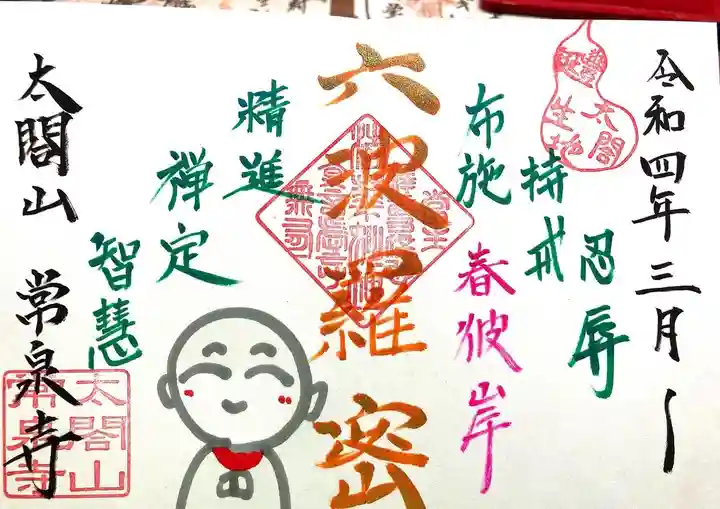 令和四年三月
豊太閤
誕生地
忍辱
持戒
布施
春彼岸
六波羅密
精進
禅定
智慧
太閤山 常泉寺
太閤山
常泉寺